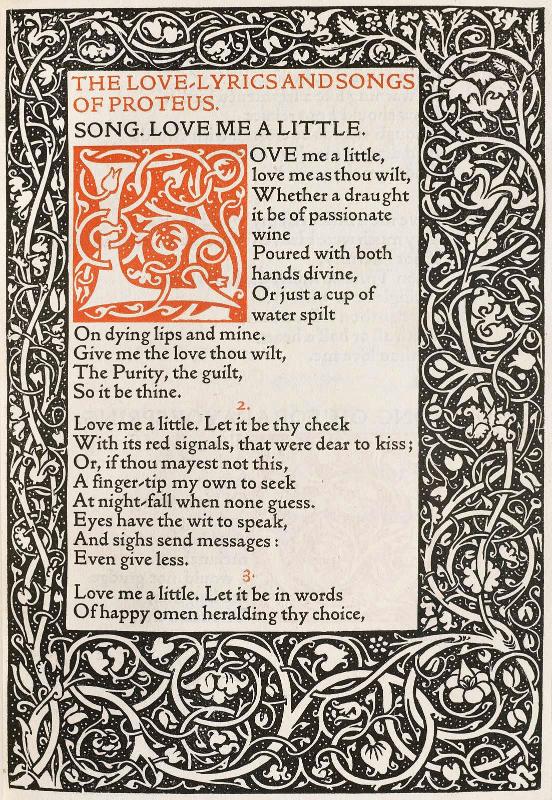 THE LOVE-LYRICS AND SONGS
OF PROTEUS.
SONG. LOVE ME A LITTLE.
LOVE me a little,
love me as thou wilt,
Whether a draught
it be of passionate
wine
Poured with both
hands divine,
Or just a cup of
water spilt
On dying lips and mine.
Give me the love thou wilt,
The Purity, the guilt,
So it be thine.
2.
Love me a little. Let it be thy cheek
With its red signals, that were dear to kiss;
Or, if thou mayest not this,
A finger-tip my own to seek
At night-fall when none guess.
Eyes have the wit to speak,
And sighs send messages:
Even give less.
3.
Love me a little. Let it be in words
Of happy omen heralding thy choice,